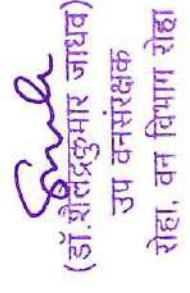 (डॉ.शैलेंद्रकुमार जाधव)
उप वनसंरक्षक
रोहा, वन विभाग रोहा